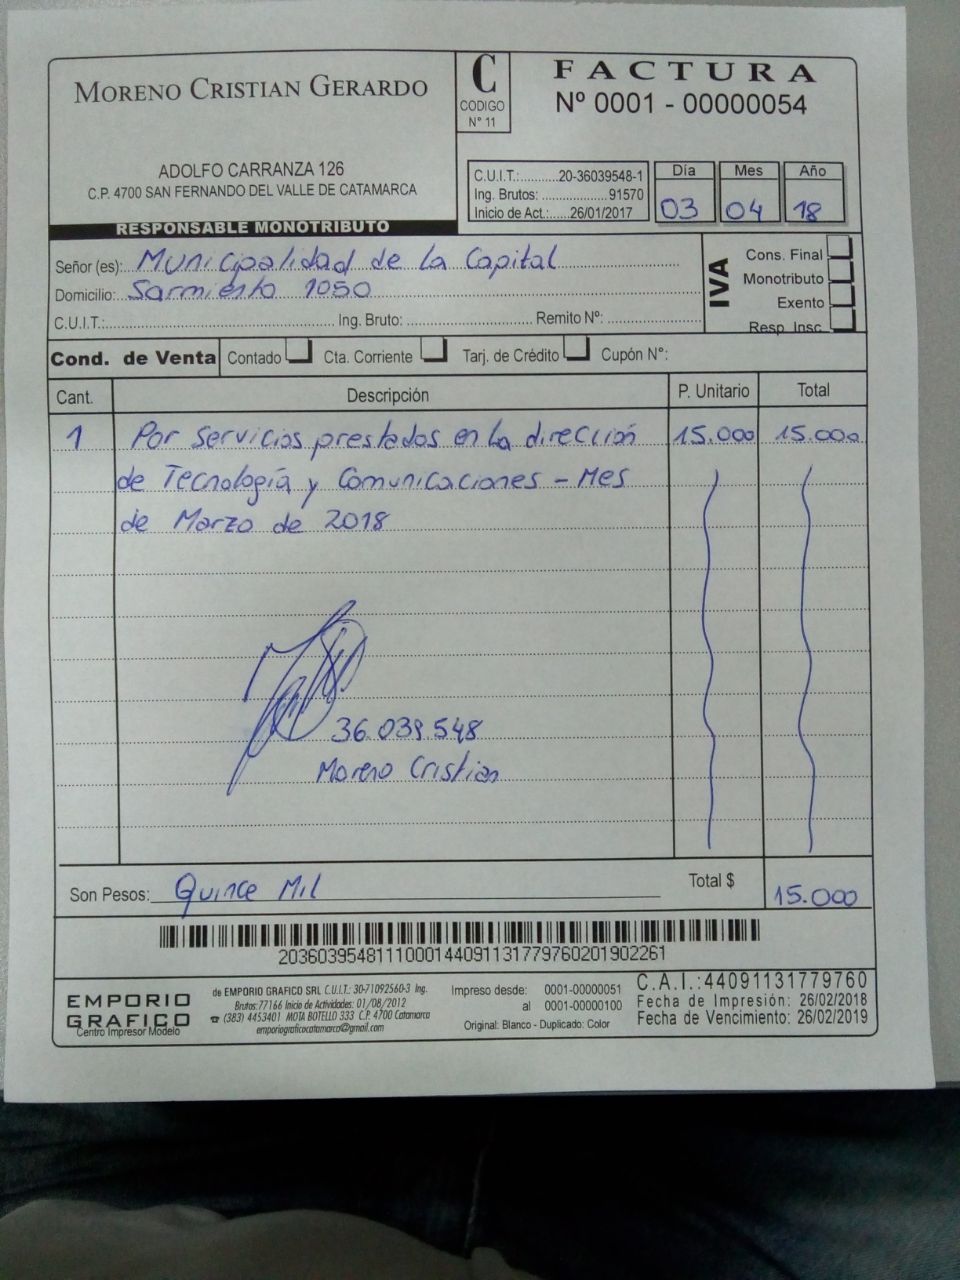 MORENO CRISTIAN GERARDO
ADOLFO CARRANZA 126
C.P. 4700 SAN FERNANDO DEL VALLE DE CATAMARCA
RESPONSABLE MONOTRIBUTO
C
CODIGO
N° 11
FACTURA
Nº 0001 - 00000054
C.U.I.T.:..........20-36039548-1
Ing. Brutos:....................91570
Inicio de Act.:......26/01/2017
Día Mes Año
03 04 18
Señor (es): Municipalidad de la Capital
Domicilio: Sarmiento 1050
C.U.I.T.: Ing. Bruto: Remito Nº:
IVA
Cons. Final
Monotributo
Exento
Resp. Insc.
Cond. de Venta Contado Cta. Corriente Tarj. de Crédito Cupón N°:
Cant. Descripción P. Unitario Total
1 Por servicios prestados en la dirección 15.000 15.000
de Tecnología y Comunicaciones - Mes
de Marzo de 2018
36.039.548
Moreno Cristian
Son Pesos: Quince Mil Total $ 15.000
2036039548111000144091131779760201902261
EMPORIO
GRAFICO
Centro Impresor Modelo
de EMPORIO GRAFICO SRL C.U.I.T.: 30-71092560-3 Ing.
Brutos:77166 Inicio de Actividades: 01/08/2012
☎ (383) 4453401 MOTA BOTELLO 333 C.P. 4700 Catamarca
emporiograficocatamarca@gmail.com
Impreso desde: 0001-00000051
al 0001-00000100
Original: Blanco - Duplicado: Color
C.A.I.:44091131779760
Fecha de Impresión: 26/02/2018
Fecha de Vencimiento: 26/02/2019